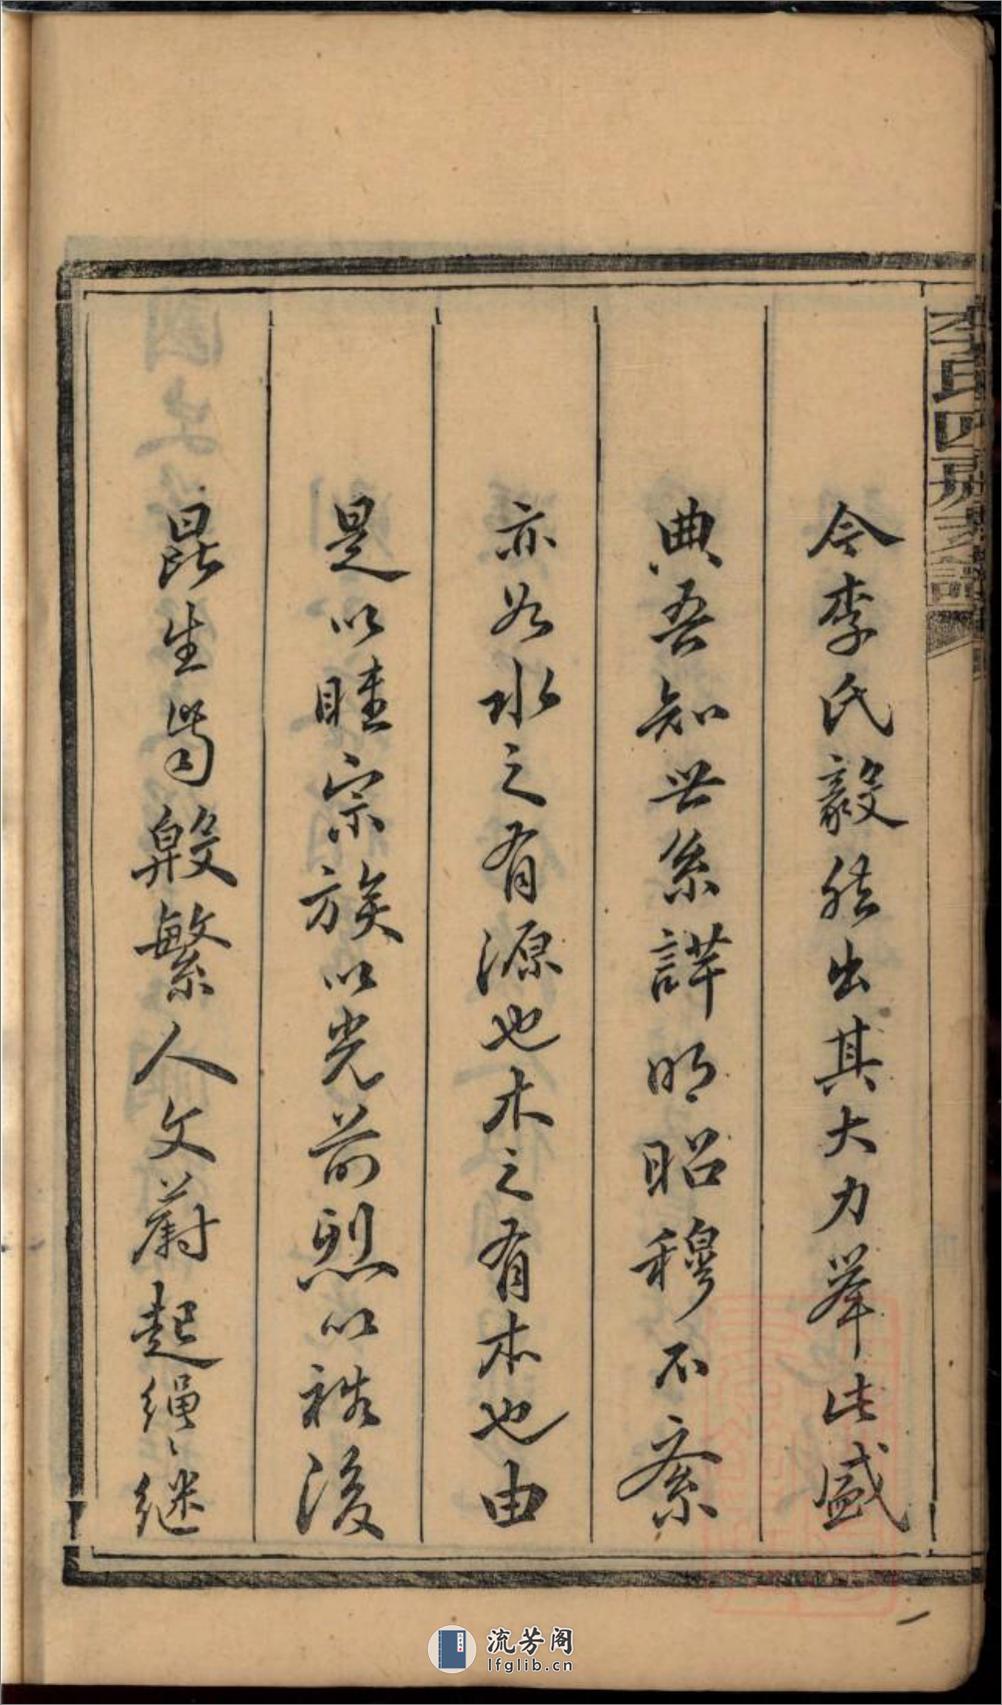 今李氏毅然出其大力舉此盛
典吾知世系詳明昭穆不紊
亦如水之有源也木之有本也由
是以睦宗族以光前烈以裕後
昆生齒殷繁人文蔚起繩繩繼
李氏四房支譜
流芳阁
lfglib.cn